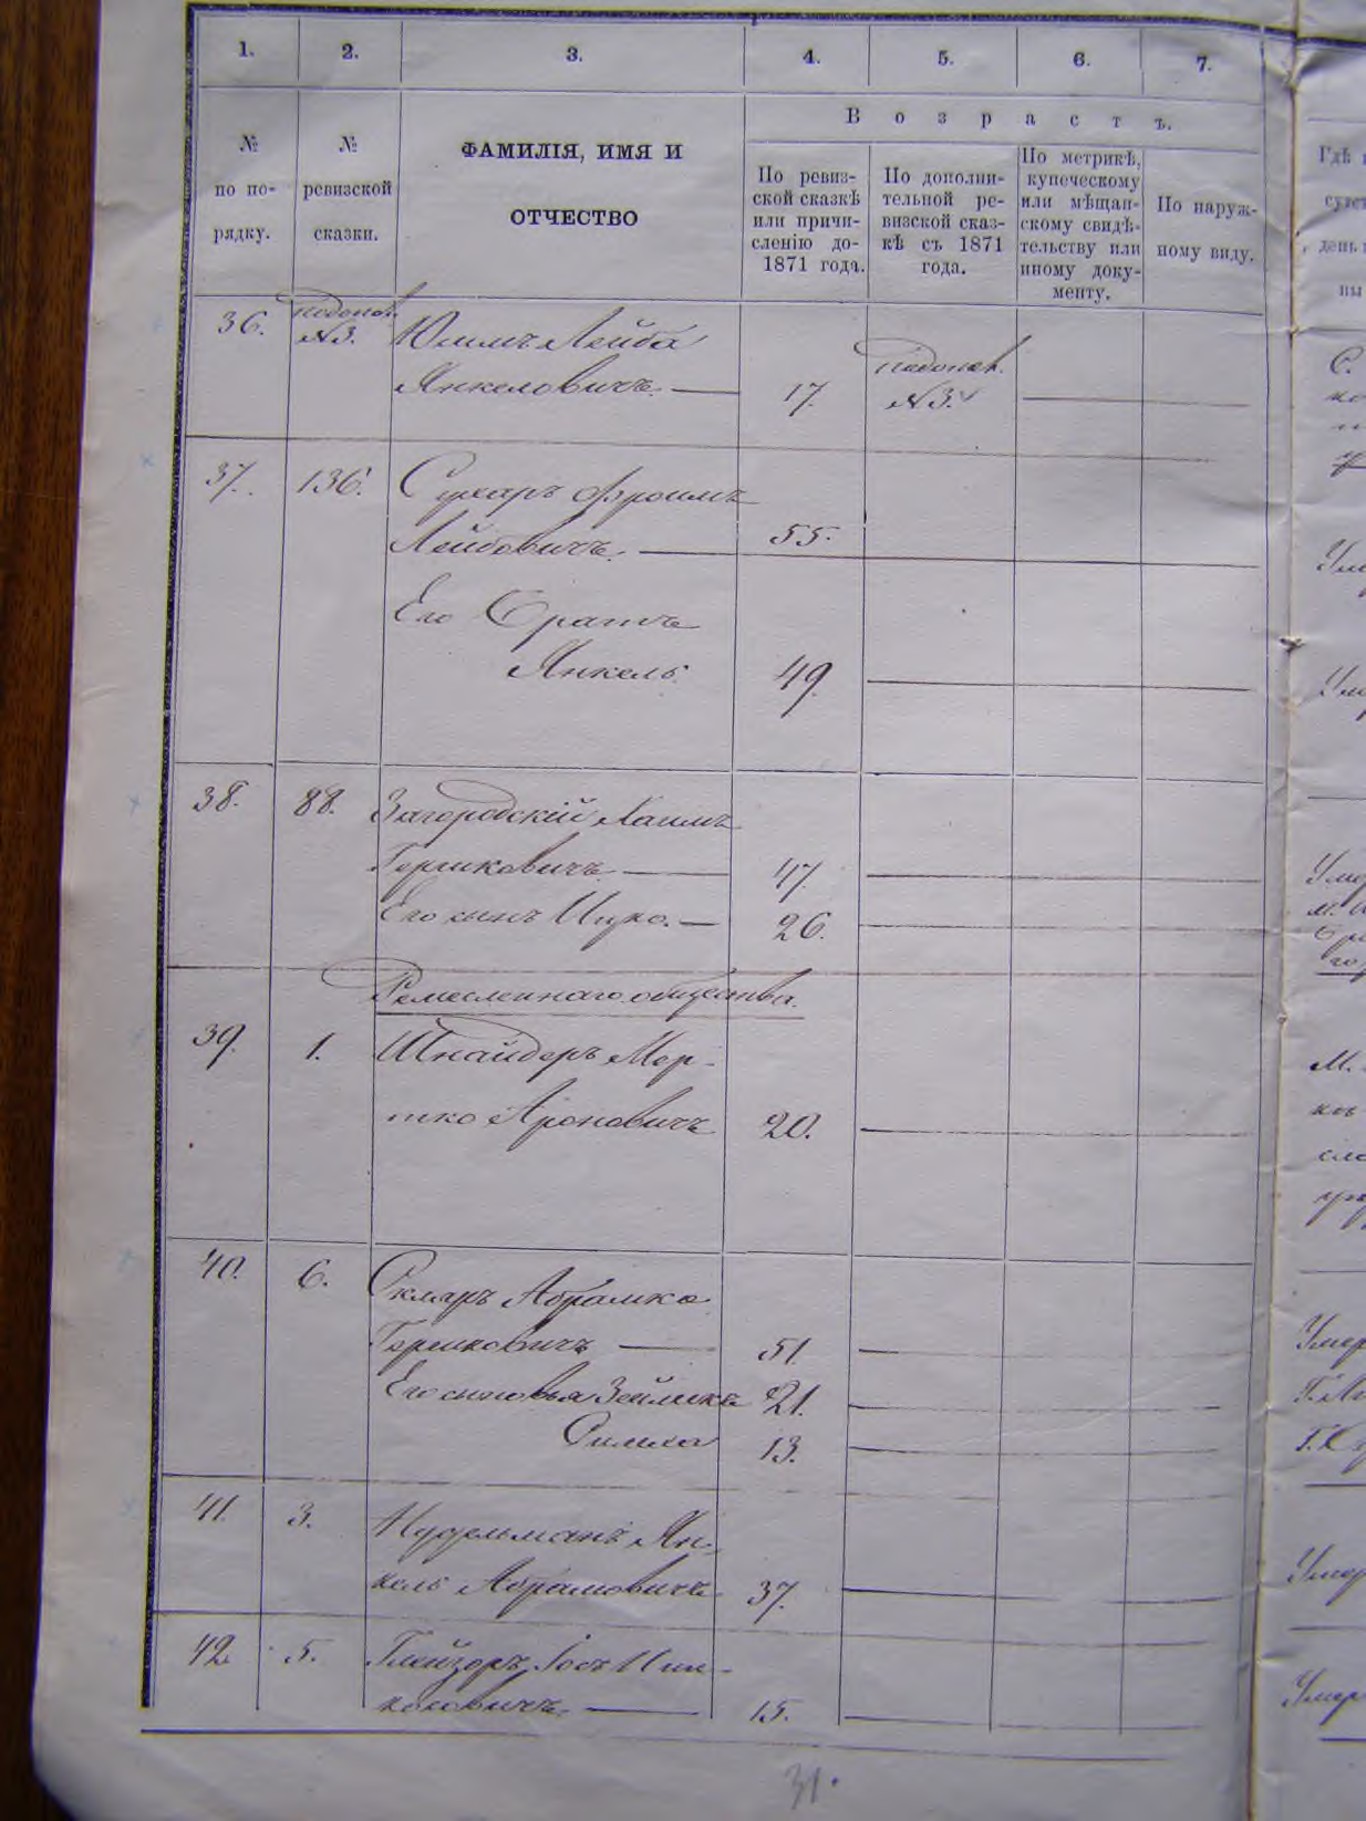 1. 2. 3. 4. 5. 6. 7.
№ по по-рядку.
№ ревизской сказки.
ФАМИЛІЯ, ИМЯ И
ОТЧЕСТВО
Возрастъ.
По ревиз-
ской сказкѣ
или причи-
сленію до-
1871 года.
По дополни-
тельной ре-
визской сказ-
кѣ съ 1871
года.
По метрикѣ,
купеческому
или мѣщан-
скому свидѣ-
тельству или
иному доку-
менту.
По наруж-
ному виду.
Гдѣ
день
36. №3. Лейба
Янкеловичъ. 17. №3.
37. 136. Сухаръ Фроимъ
Лейбовичъ. 55.
Его братъ
Янкель 49.
38. 88. Загородскій Хаимъ
Гершковичъ 47.
Его сынъ Ицко. 26.
Ремесленнаго общества.
39. 1. Шнайдеръ Мор-
тко Ароновичъ 20.
40. 6. Скляръ Абрамко
Гершковичъ 51.
Его сыновья Зейлихъ 21.
Симха 13.
41. 3. Нудельманъ Ян-
кель Абрамовичъ 37.
42. 5. Глейзеръ Іось
15.
Умер
Умер
Умер
31.